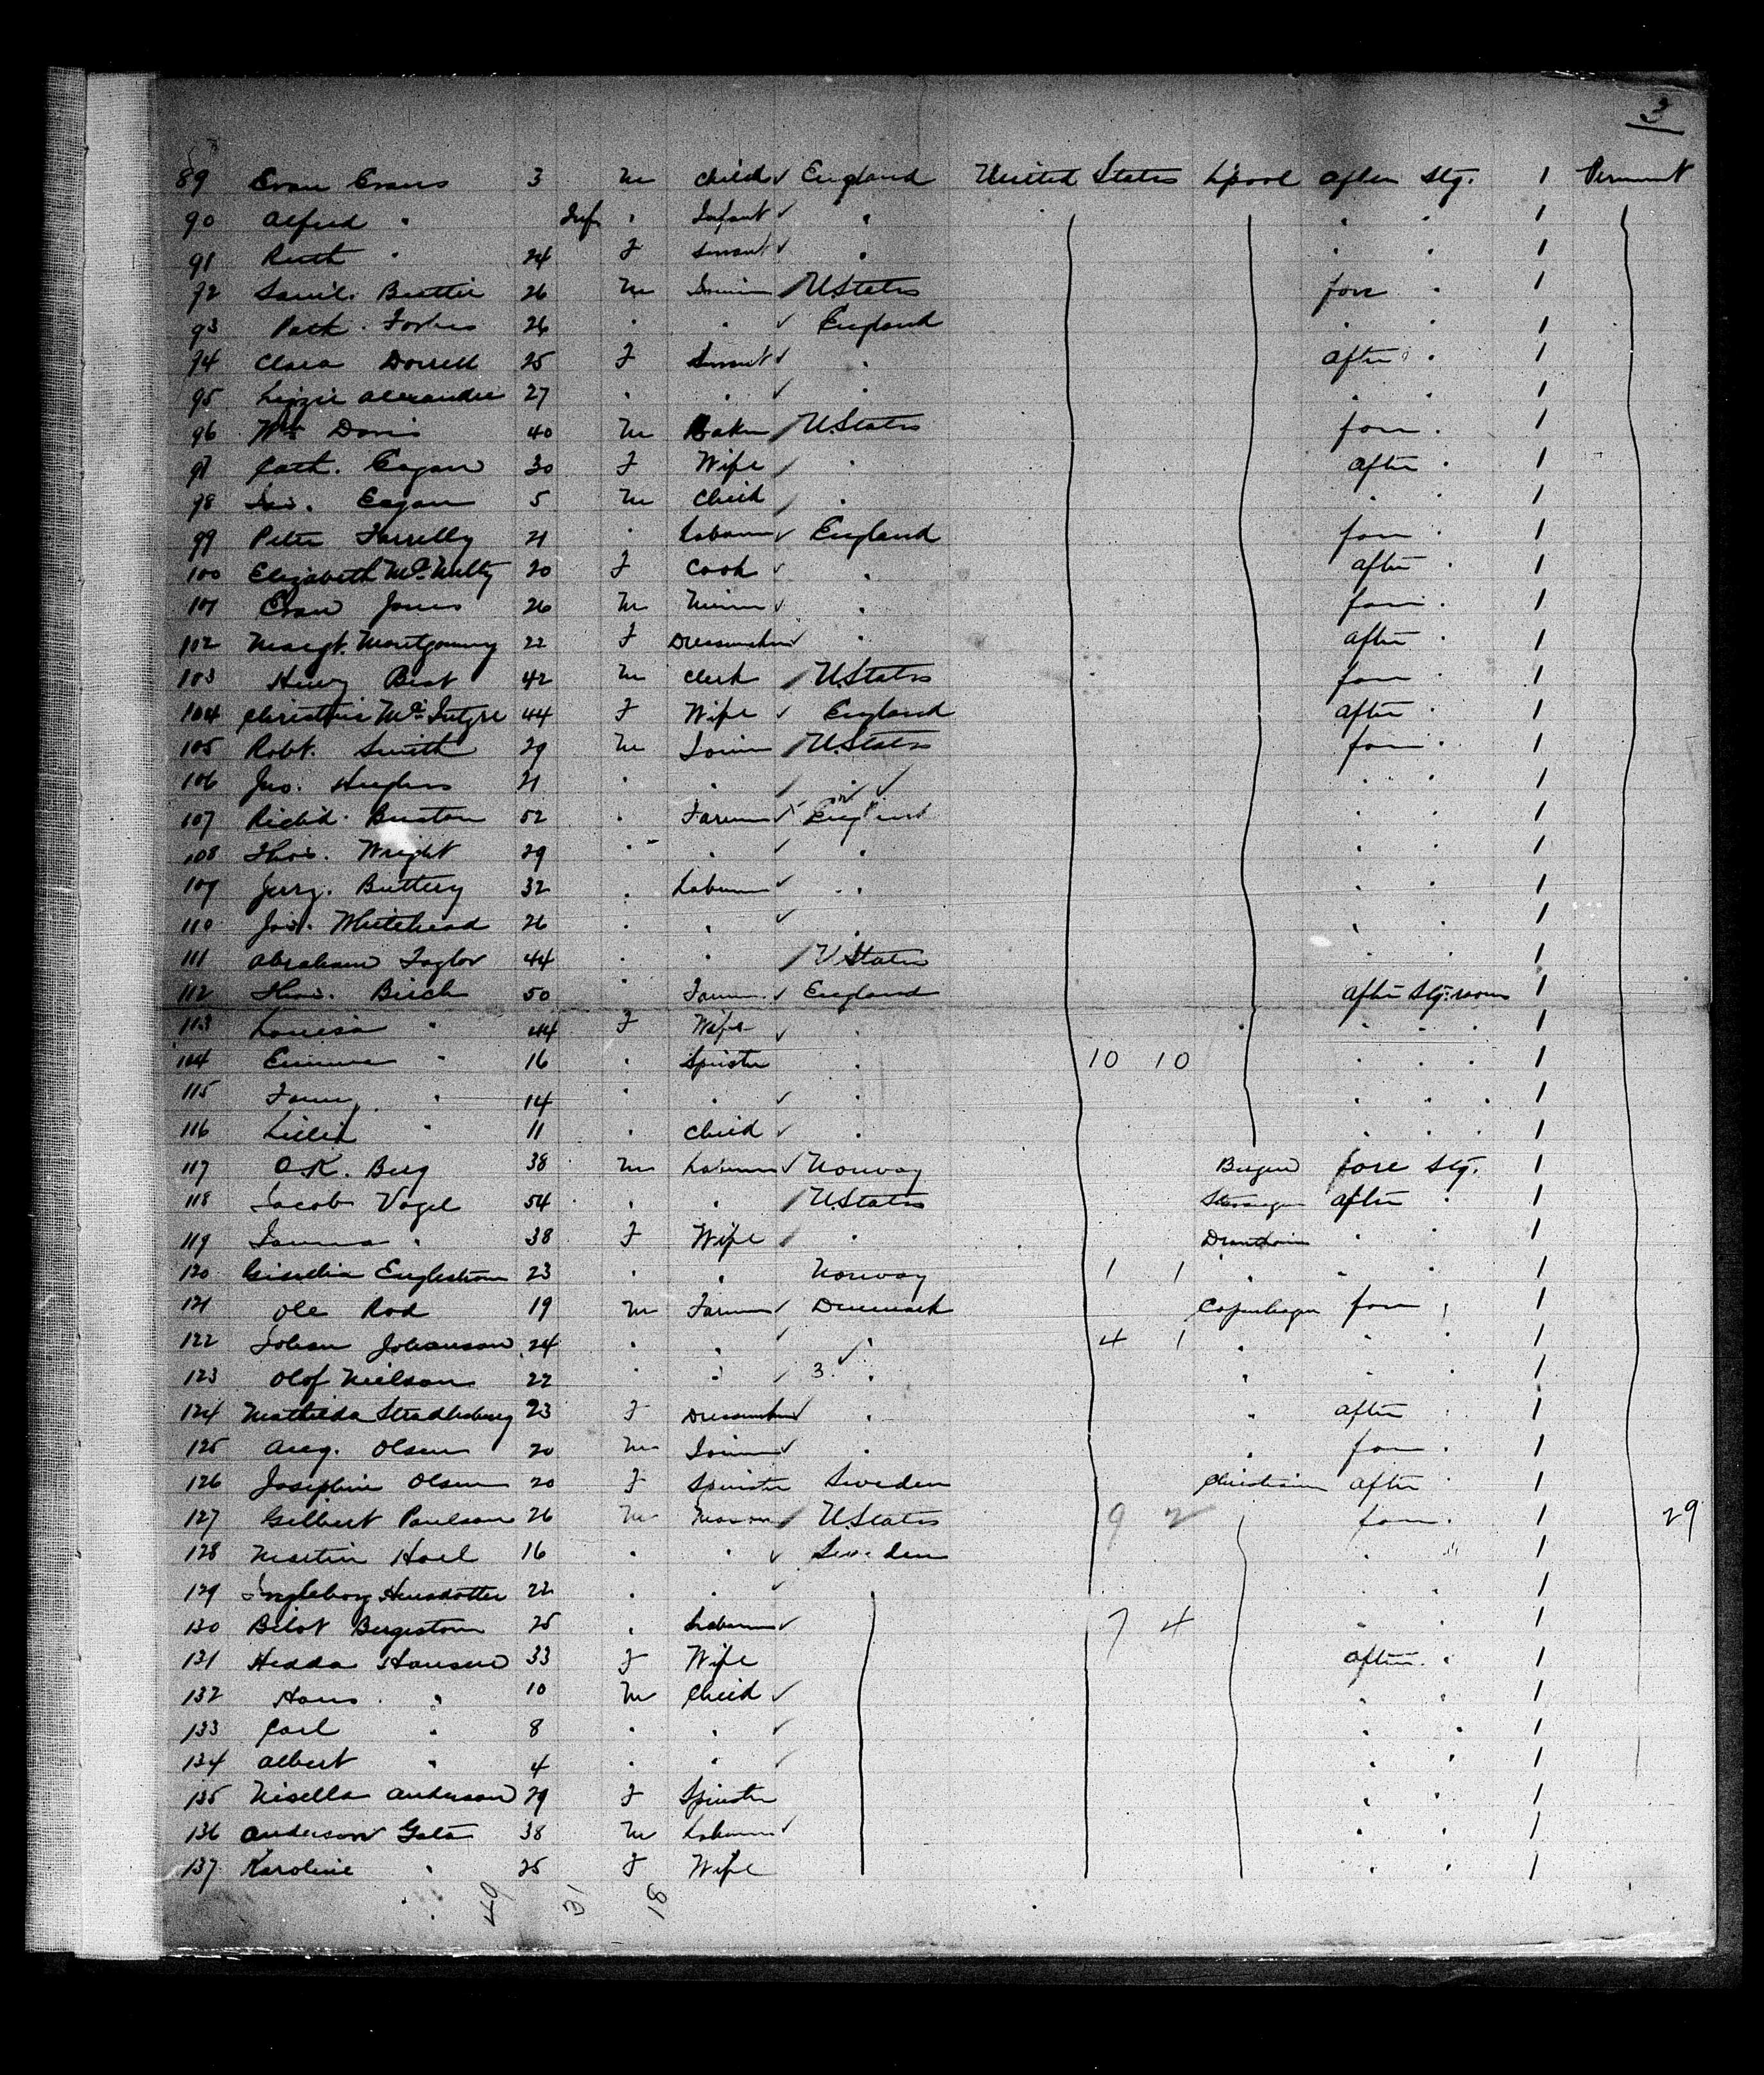 3
89 Evan Evans 3 M Child ✓ England United States L'pool after Stg. 1 Permnt
90 Alfred " Inf " Infant ✓ " " " 1
91 Ruth " 24 F Servant ✓ " " " 1
92 Saml. Beattie 26 M Joiner / U States fore " 1
93 Patk. Forbes 26 " " ✓ England " " 1
94 Clara Dorrell 25 F Servant ✓ " after " 1
95 Lizzie Alexander 27 " " ✓ " " " 1
96 Wm Davis 40 M Baker / U States fore " 1
97 Cath. Eagan 30 F Wife / " after " 1
98 Eagan 5 M Child / " " " 1
99 Peter Farrelly 21 " Labourer ✓ England fore " 1
100 Elizabeth McNulty 20 F Cook ✓ " after " 1
101 Evan Jones 26 M Miner ✓ " fore " 1
102 Margt. Montgomery 22 F Dressmaker ✓ " after " 1
103 Henry Best 42 M Clerk / U States fore " 1
104 Christina McIntyre 44 F Wife ✓ England after " 1
105 Robt. Smith 29 M Joiner / U States fore " 1
106 Jno. Hughes 21 " " / " " " 1
107 Richd. Burton 52 " Farmer ✓ England " " 1
108 Thos. Wright 29 " " ✓ " " " 1
109 Buttery 32 " Labourer ✓ " " " 1
110 Jos. Whitehead 26 " " ✓ " " " 1
111 Abraham Taylor 44 " " / U States " " 1
112 Thos. Birch 50 " Farmer ✓ England after Stg. room 1
113 Louisa " 44 F Wife ✓ " " " " 1
104 Emma " 16 " Spinster " 10 10 " " " 1
115 Fanny " 14 " " ✓ " " " " 1
116 " 11 " Child ✓ " " " " 1
117 O.K. Berg 38 M Labourer ✓ Norway Bergen fore Stg. 1
118 Jacob Vogel 54 " " / U States Stavanger after " 1
119 " 38 F Wife / " Drontheim " " 1
120 Englestrom 23 " " Norway 1 1 " " " 1
121 Ole Rod 19 M Farmer ✓ Denmark Copenhagen fore " 1
122 Johan Johanson 24 " " ✓ " 4 1 " " " 1
123 Olof Nielson 22 " " ✓ 3 " " " " 1
124 Mathilda 23 F Dressmaker ✓ " " after " 1
125 Aug. Olsen 20 M Joiner ✓ " " fore " 1
126 Josephine Olsen 20 F Spinster Sweden Christiania after " 1
127 Gilbert Paulson 26 M Mason / U States 9 2 fore " 1 29
128 Martin Hoel 16 " " ✓ Sweden " " 1
129 Ingleborg Hansdotter 22 " " ✓ " " 1
130 Bergstrom 25 " Labourer ✓ 7 4 " " 1
131 Hedda Hansen 33 F Wife after " 1
132 Hans " 10 M Child ✓ " " 1
133 Carl " 8 " " ✓ " " 1
134 Albert " 4 " " ✓ " " 1
135 Anderson 29 F Spinster " " 1
136 Anderson 38 M Labourer ✓ " " 1
137 Karoline " 25 F Wife " " 1
49 31 18